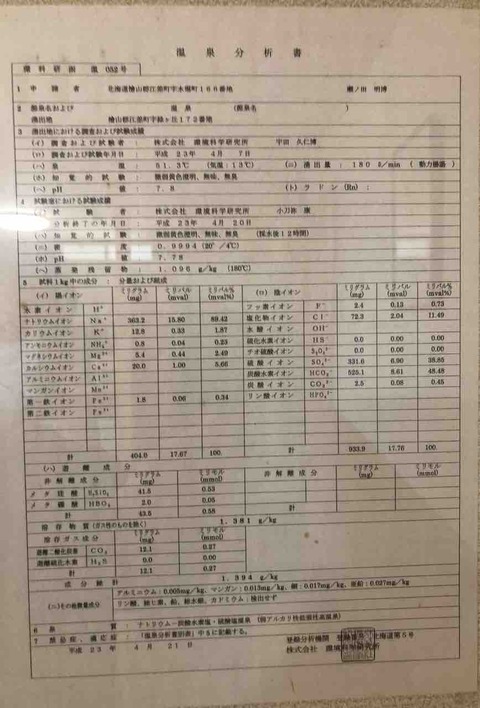 温泉分析書
環科研函 温 052号
1 申請者 北海道檜山郡江差町字水堀町166番地 明博
2 源泉名および 温泉 (源泉名 )
湧出地 檜山郡江差町字緑ヶ丘172番地
3 湧出地における調査および試験成績
(イ) 調査および試験者 : 株式会社 環境科学研究所 宇田 久仁博
(ロ) 調査および試験年月日 : 平成 23年 4月 7日
(ハ) 泉温 : 51.3℃ (気温:13℃) (ニ) 湧出量 : 180 ℓ/min ( 動力揚湯 )
(ホ) 知覚的試験 : 微弱黄色澄明、無味、無臭
(ヘ) pH値 : 7.8 (ト) ラドン(Rn) :
4 試験室における試験成績
(イ) 試験者 : 株式会社 環境科学研究所 小刀祢 康
分析終了の年月日 : 平成 23年 4月 20日
(ロ) 知覚的試験 : 微弱黄色澄明、無味、無臭 (採水後12時間)
密度 : 0.9994 (20°/4℃)
pH値 : 7.78
蒸発残留物 : 1.096 g/kg (180℃)
5 試料1kg中の成分 : 分量および組成
(イ) 陽イオン ミリグラム(mg) ミリバル(mval) ミリバル%(mval%)
水素イオン H⁺
ナトリウムイオン Na⁺ 363.2 15.80 89.42
カリウムイオン K⁺ 12.8 0.33 1.87
アンモニウムイオン NH₄⁺ 0.8 0.04 0.23
マグネシウムイオン Mg²⁺ 5.4 0.44 2.49
カルシウムイオン Ca²⁺ 20.0 1.00 5.66
アルミニウムイオン Al³⁺
マンガンイオン Mn²⁺
第一鉄イオン Fe²⁺ 1.8 0.06 0.34
第二鉄イオン Fe³⁺
計 404.0 17.67 100.
(ロ) 陰イオン ミリグラム(mg) ミリバル(mval) ミリバル%(mval%)
フッ素イオン F⁻ 2.4 0.13 0.73
塩化物イオン Cl⁻ 72.3 2.04 11.49
水酸イオン OH⁻
硫化水素イオン HS⁻ 0.0 0.00 0.00
チオ硫酸イオン S₂O₃²⁻ 0.0 0.00 0.00
硫酸イオン SO₄²⁻ 331.6 6.90 38.85
炭酸水素イオン HCO₃⁻ 525.1 8.61 48.48
炭酸イオン CO₃²⁻ 2.5 0.08 0.45
リン酸イオン HPO₄²⁻
計 933.9 17.76 100.
(ハ) 遊離成分
非解離成分 ミリグラム(mg) ミリモル(mmol) 非解離成分 ミリグラム(mg) ミリモル(mmol)
メタ硅酸 H₂SiO₃ 41.5 0.53
メタ硼酸 HBO₂ 2.0 0.05
計 43.5 0.58
溶存物質(ガス性のものを除く) 1.381 g/kg
溶存ガス成分 ミリグラム(mg) ミリモル(mmol)
遊離二酸化炭素 CO₂ 12.1 0.27
遊離硫化水素 H₂S 0.0 0.00
計 12.1 0.27
成分総計 1.394 g/kg
(ニ)その他微量成分 アルミニウム:0.005mg/kg、マンガン:0.013mg/kg、銅:0.017mg/kg、亜鉛:0.027mg/kg
リン酸、総ヒ素、鉛、総水銀、カドミウム:検出せず
6 泉質 : ナトリウム-炭酸水素塩・硫酸塩温泉 (弱アルカリ性低張性高温泉)
7 禁忌症、適応症 : 「温泉分析書別表」中に記載する。
平成 23年 4月 21日
登録分析機関 登録番号 北海道第5号
株式会社 環境科学研究所